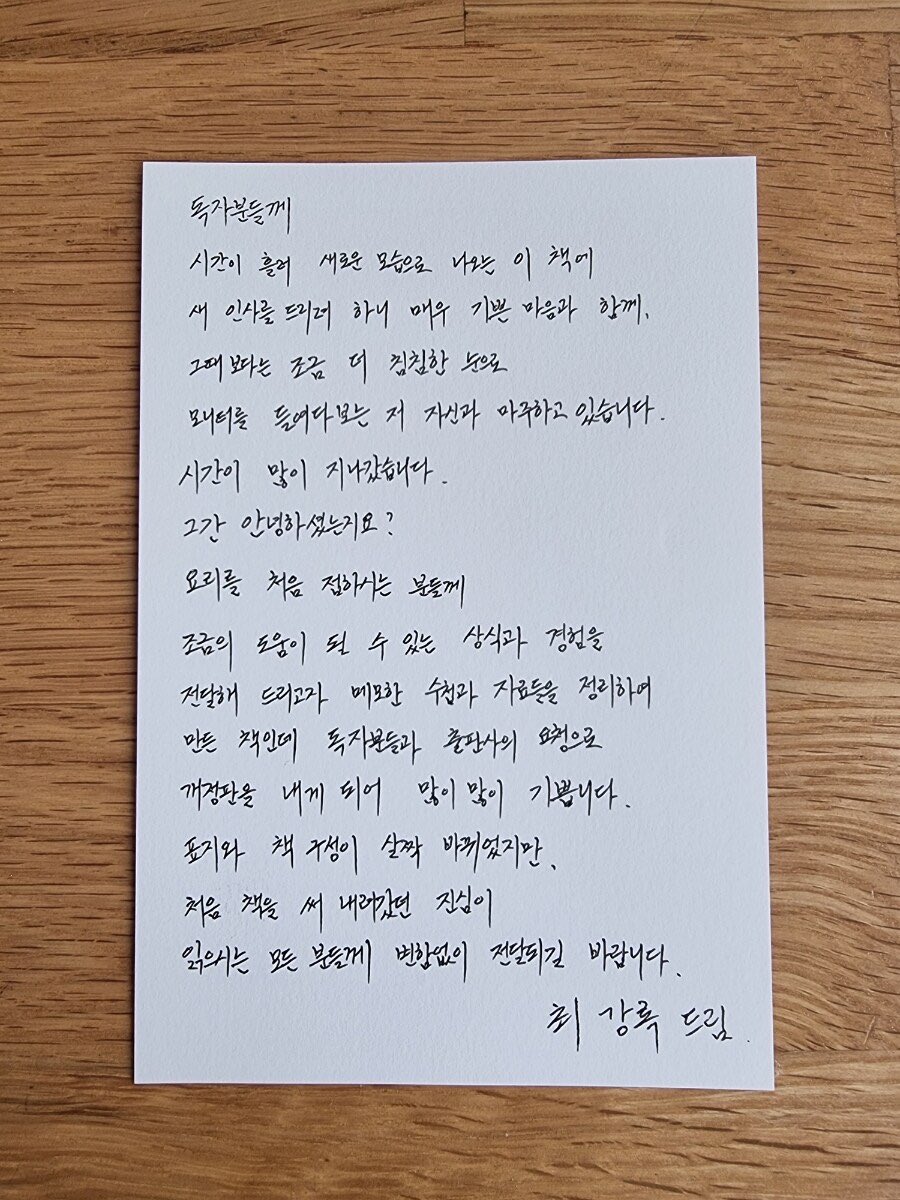 독자분들께
시간이 흘러 새로운 모습으로 나오는 이 책에
새 인사를 드리려 하니 매우 기쁜 마음과 함께,
그때보다는 조금 더 침침한 눈으로
모니터를 들여다보는 저 자신과 마주하고 있습니다.
시간이 많이 지나갔습니다.
그간 안녕하셨는지요?
요리를 처음 접하시는 분들께
조금의 도움이 될 수 있는 상식과 경험을
전달해 드리고자 메모한 수첩과 자료들을 정리하여
만든 책인데 독자분들과 출판사의 요청으로
개정판을 내게 되어 많이 많이 기쁩니다.
표지와 책 구성이 살짝 바뀌었지만,
처음 책을 써 내려갔던 진심이
읽으시는 모든 분들께 변함없이 전달되길 바랍니다.
최강록 드림.